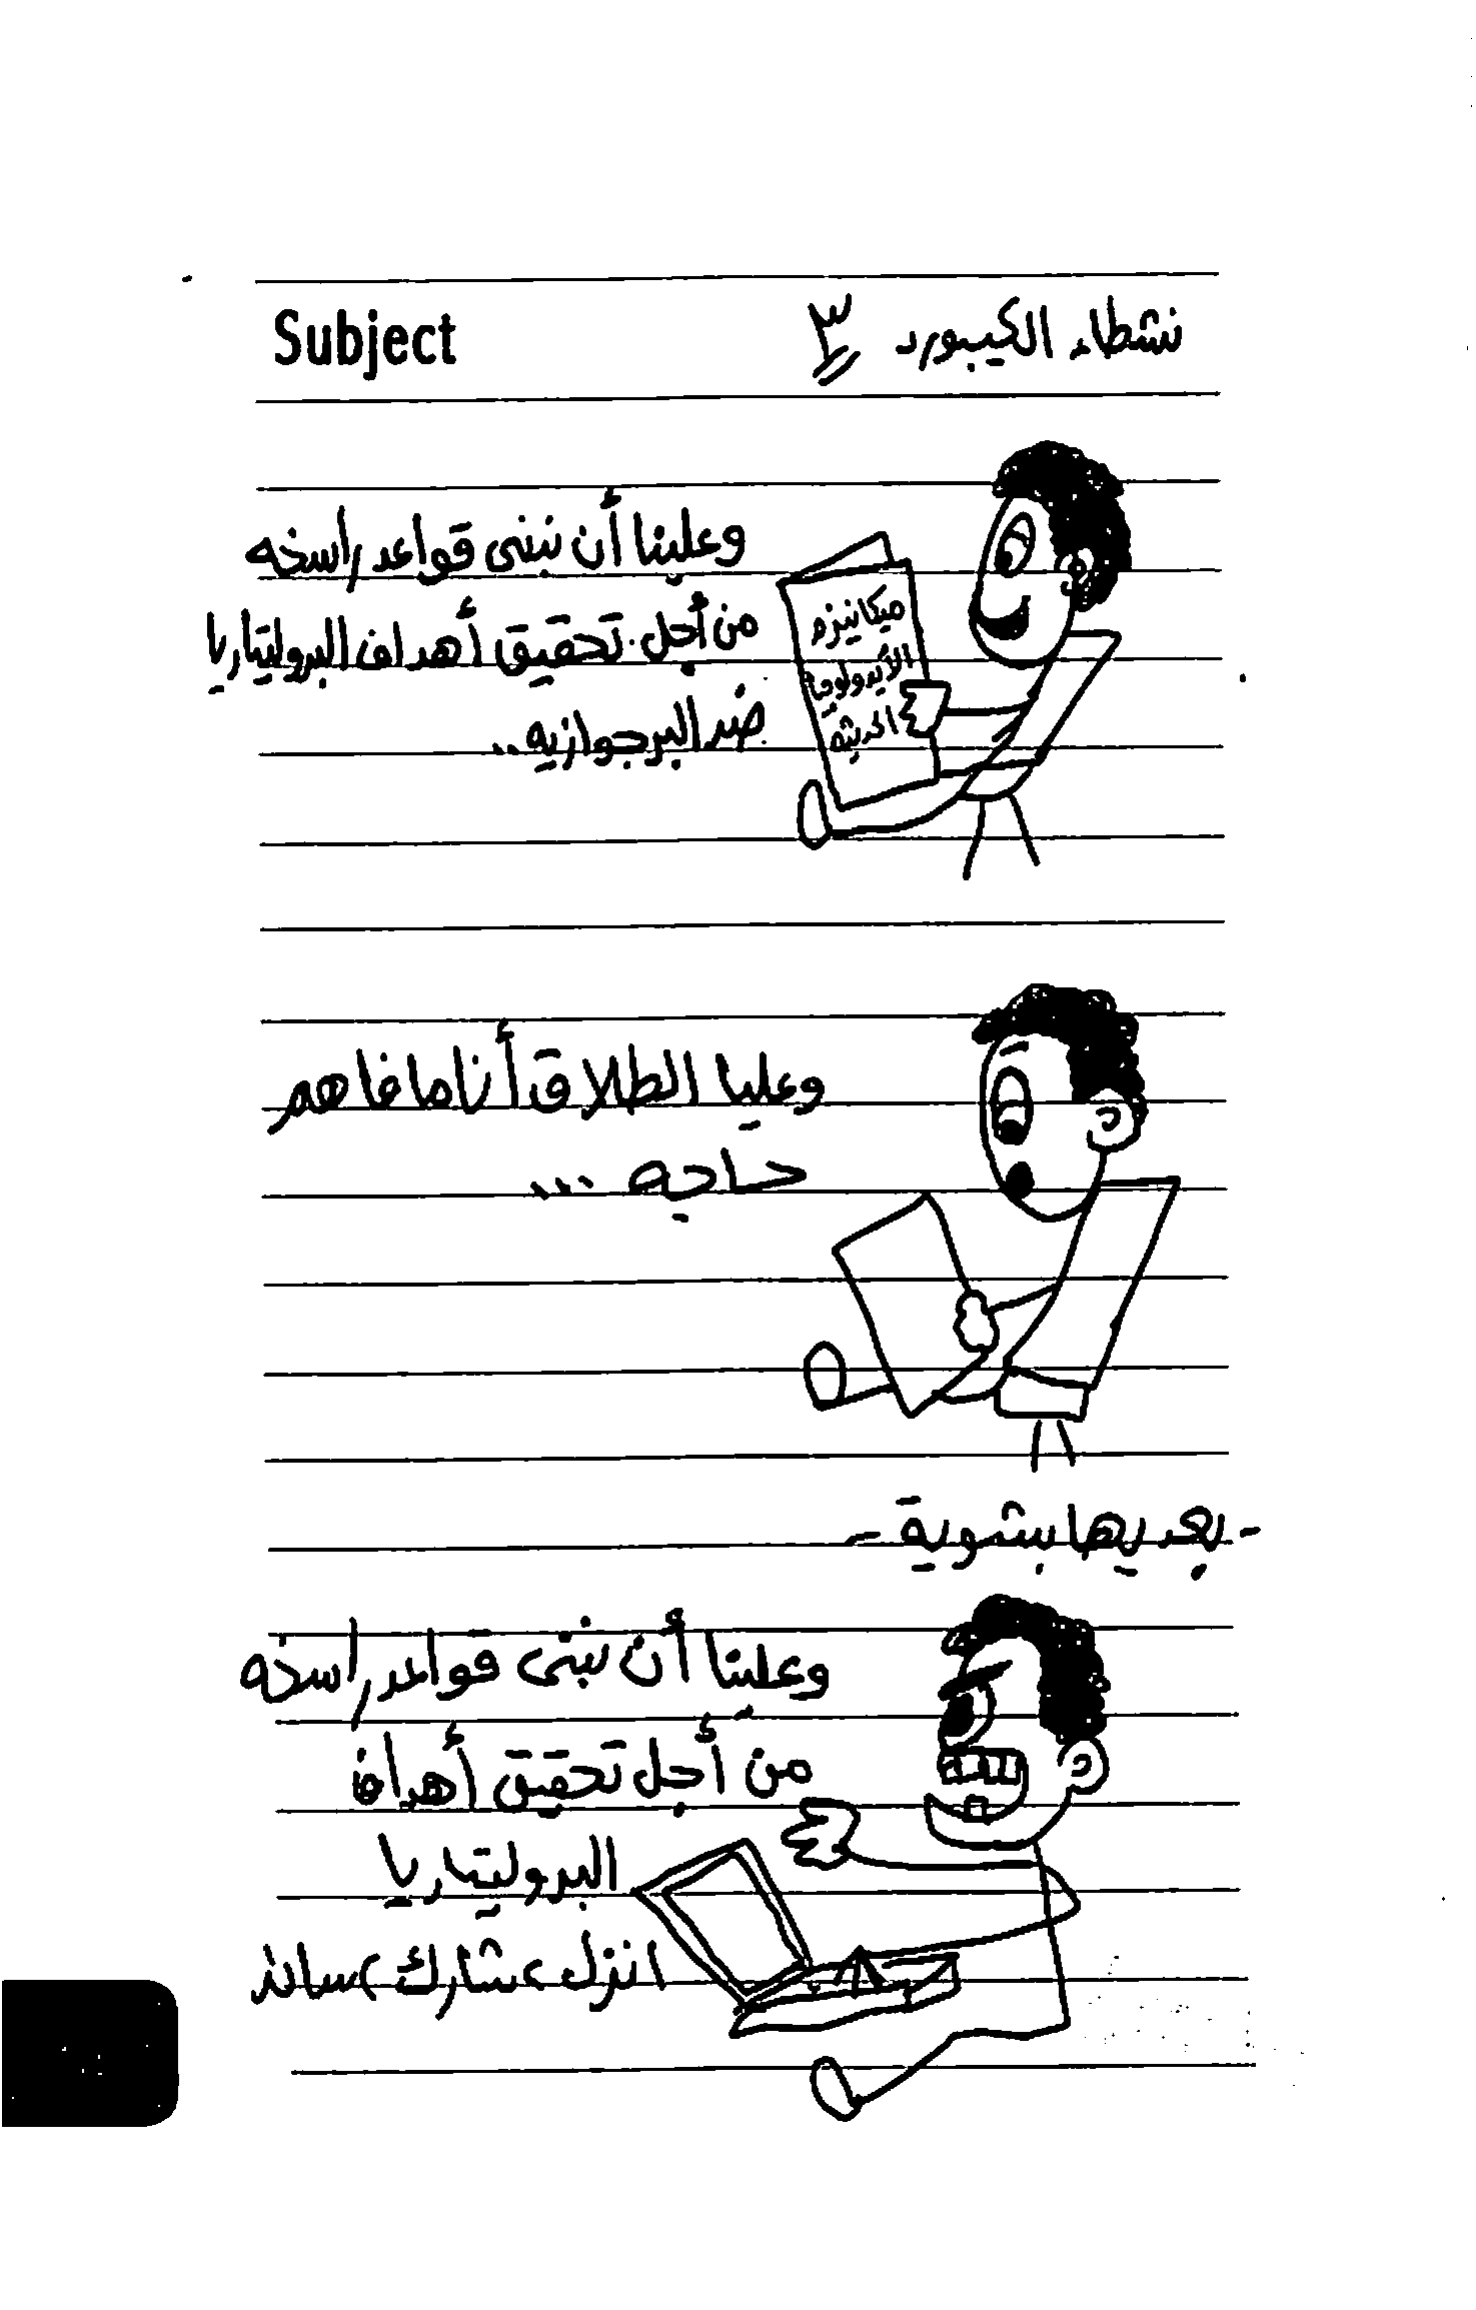 نشطاء الكيبورد ٣
Subject
وعلينا أن نبنى قواعد راسخه
من أجل تحقيق أهداف البروليتاريا
ضد البرجوازيه..
ميكانيزم
الأيدولوجيا
الحديثه
وعليا الطلاق أنا ما فاهم
حاجه ...
- بعديها بشوية -
وعلينا أن نبنى قواعد راسخه
من أجل تحقيق أهداف
البروليتاريا
انزل، شارك، ساند